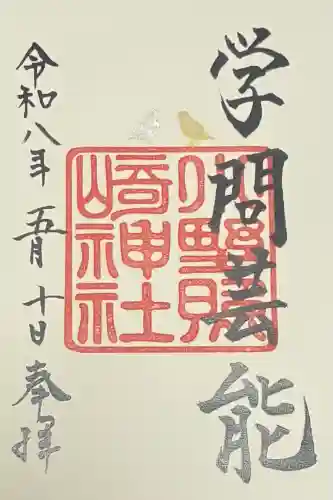 学問芸能
小野照
崎神社
令和八年五月十日奉拝